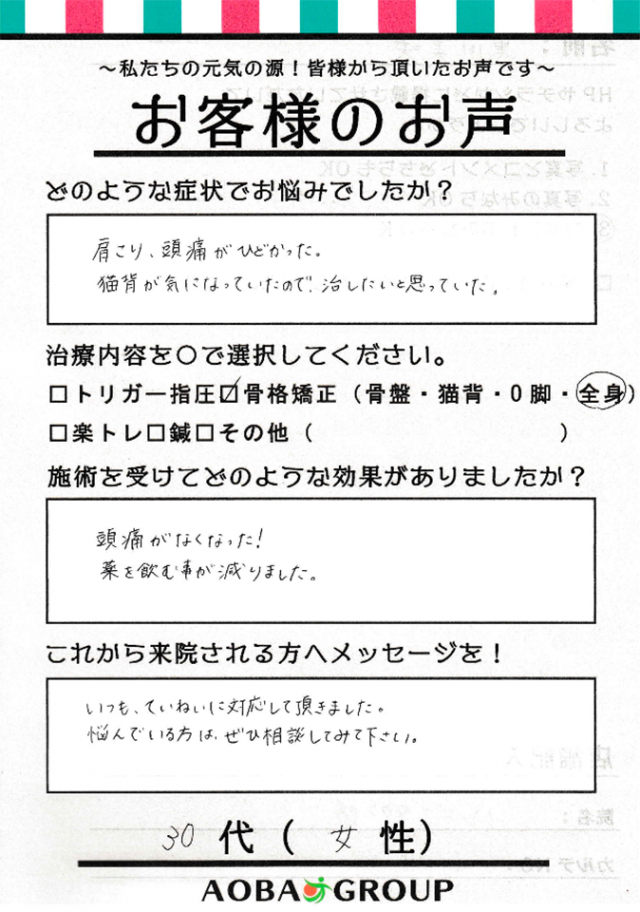 ~私たちの元気の源!皆様から頂いたお声です~
お客様のお声
どのような症状でお悩みでしたか?
肩こり、頭痛がひどかった。
猫背が気になっていたので、治したいと思っていた。
治療内容を○で選択してください。
□トリガー指圧☑骨格矯正(骨盤・猫背・O脚・全身)
□楽トレ□鍼□その他( )
施術を受けてどのような効果がありましたか?
頭痛がなくなった!
薬を飲む事が減りました。
これから来院される方へメッセージを!
いつも、ていねいに対応して頂きました。
悩んでいる方は、ぜひ相談してみて下さい。
30代(女性)
AOBA GROUP